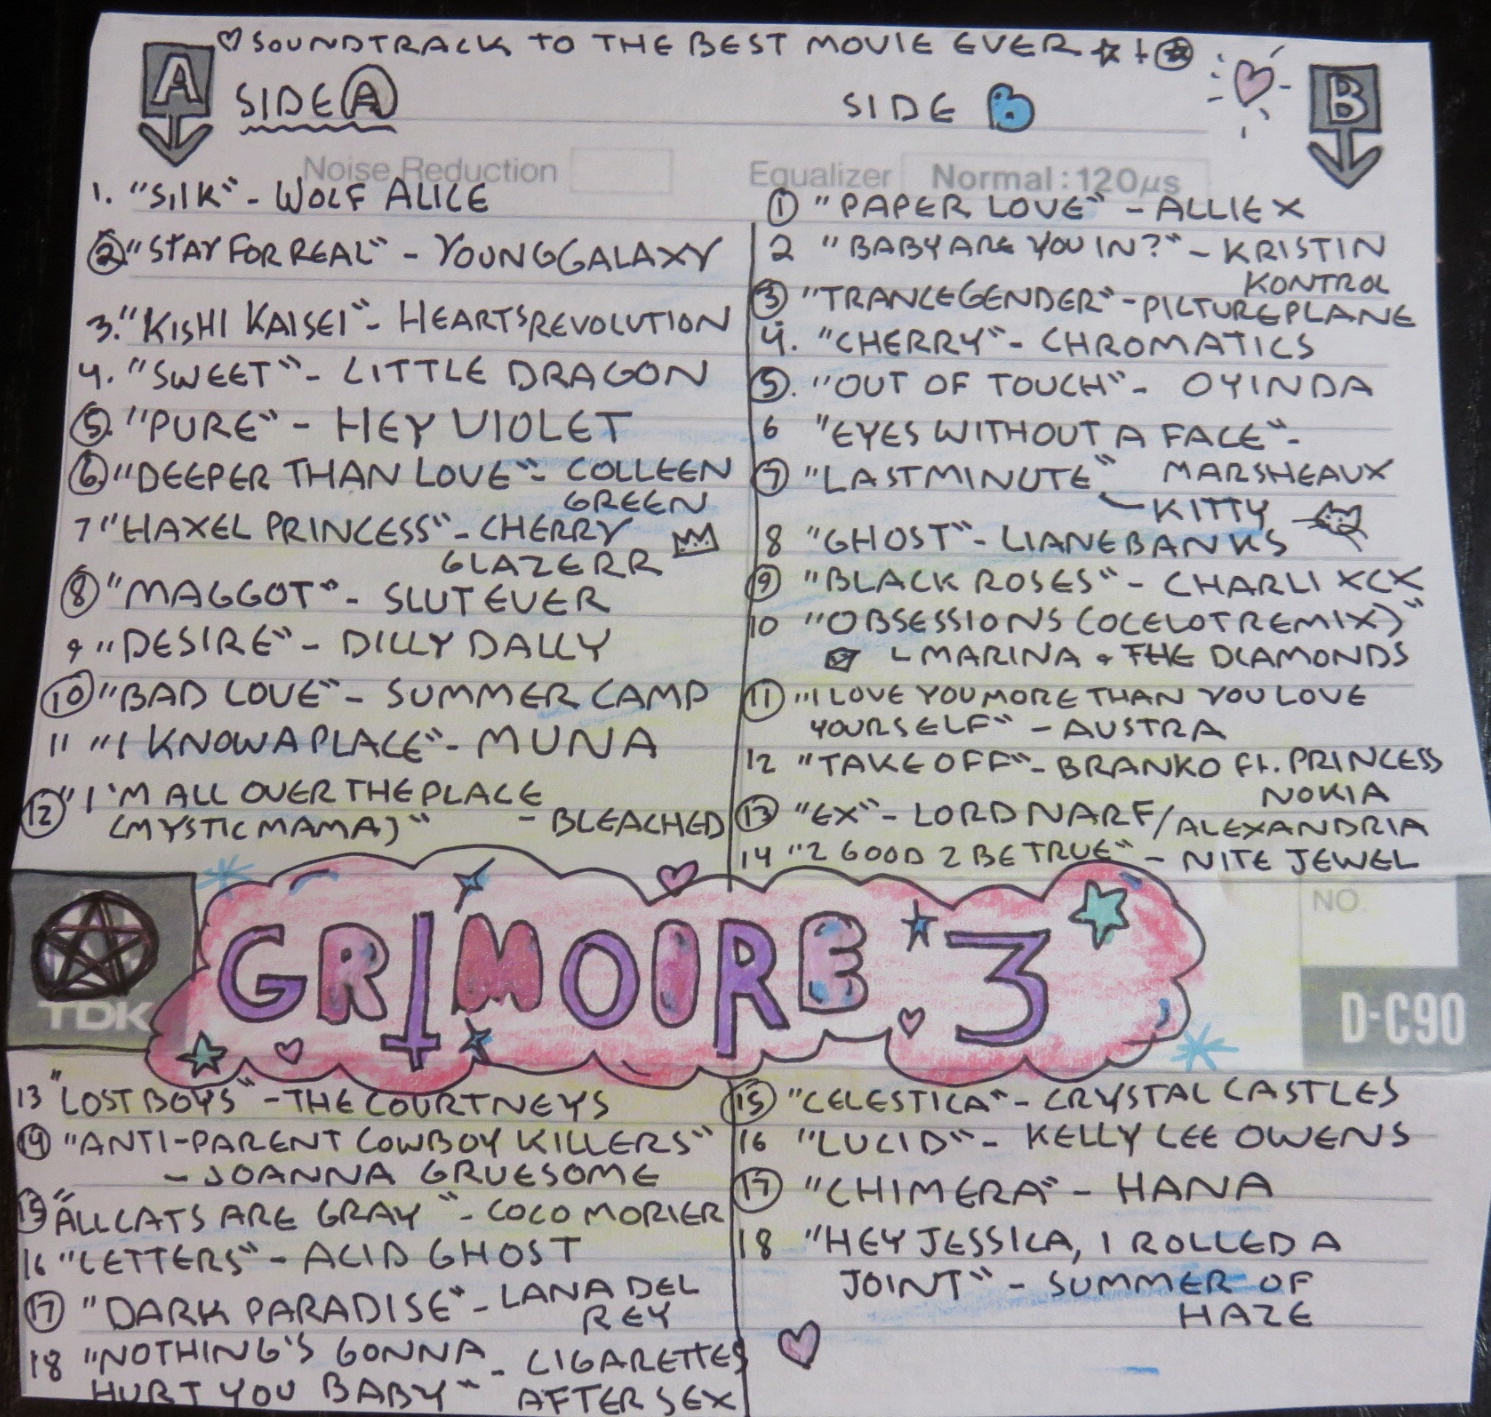 ♡ SOUNDTRACK TO THE BEST MOVIE EVER ☆ +
A
SIDE A
Noise Reduction
1. "SILK" - WOLF ALICE
2 "STAY FOR REAL" - YOUNG GALAXY
3. "KISHI KAISEI" - HEARTSREVOLUTION
4. "SWEET" - LITTLE DRAGON
5. "PURE" - HEY VIOLET
6 "DEEPER THAN LOVE" - COLLEEN
GREEN
7 "HAXEL PRINCESS" - CHERRY
GLAZERR
8 "MAGGOT" - SLUTEVER
9 "DESIRE" - DILLY DALLY
10 "BAD LOVE" - SUMMER CAMP
11 "I KNOW A PLACE" - MUNA
12 "I'M ALL OVER THE PLACE
(MYSTIC MAMA)" - BLEACHED
SIDE B
B
Equalizer Normal : 120µs
1 "PAPER LOVE" - ALLIE X
2 "BABY ARE YOU IN?" - KRISTIN
KONTROL
3 "TRANCEGENDER" - PICTUREPLANE
4. "CHERRY" - CHROMATICS
5. "OUT OF TOUCH" - OYINDA
6 "EYES WITHOUT A FACE" -
MARSHEAUX
7 "LAST MINUTE"
- KITTY
8 "GHOST" - LIANE BANKS
9 "BLACK ROSES" - CHARLI XCX
10 "OBSESSIONS (OCELOT REMIX)"
MARINA + THE DIAMONDS
11 "I LOVE YOU MORE THAN YOU LOVE
YOURSELF" - AUSTRA
12 "TAKE OFF" - BRANKO ft. PRINCESS
NOKIA
13 "EX" - LORD NARF/ALEXANDRIA
14 "2 GOOD 2 BE TRUE" - NITE JEWEL
TDK
GRIMOIRE 3
NO.
D-C90
13 "LOST BOYS" - THE COURTNEYS
14 "ANTI-PARENT COWBOY KILLERS"
- JOANNA GRUESOME
15 "ALL CATS ARE GRAY" - COCO MORIER
16 "LETTERS" - ACID GHOST
17 "DARK PARADISE" - LANA DEL
REY
18 "NOTHING'S GONNA
HURT YOU BABY" - CIGARETTES
AFTER SEX
15 "CELESTICA" - CRYSTAL CASTLES
16 "LUCID" - KELLY LEE OWENS
17 "CHIMERA" - HANA
18 "HEY JESSICA, I ROLLED A
JOINT" - SUMMER OF
HAZE